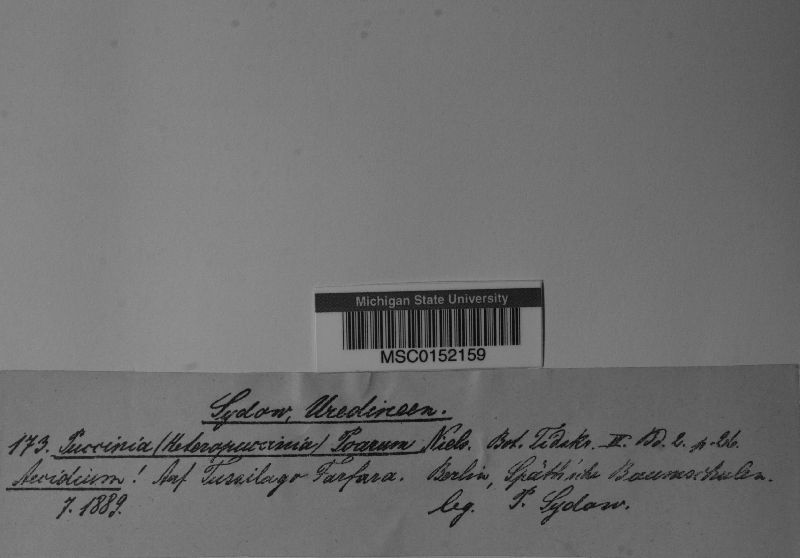 Michigan State University
MSC0152159
Sydow, Uredineen.
173. Puccinia (Heteropuccinia) Poarum Niels. Bot. Tidskr. III. Bd. 2. p. 26.
Aecidium! Auf Tussilago Farfara. Berlin, Späth'sche Baumschulen.
7. 1889. leg. P. Sydow.